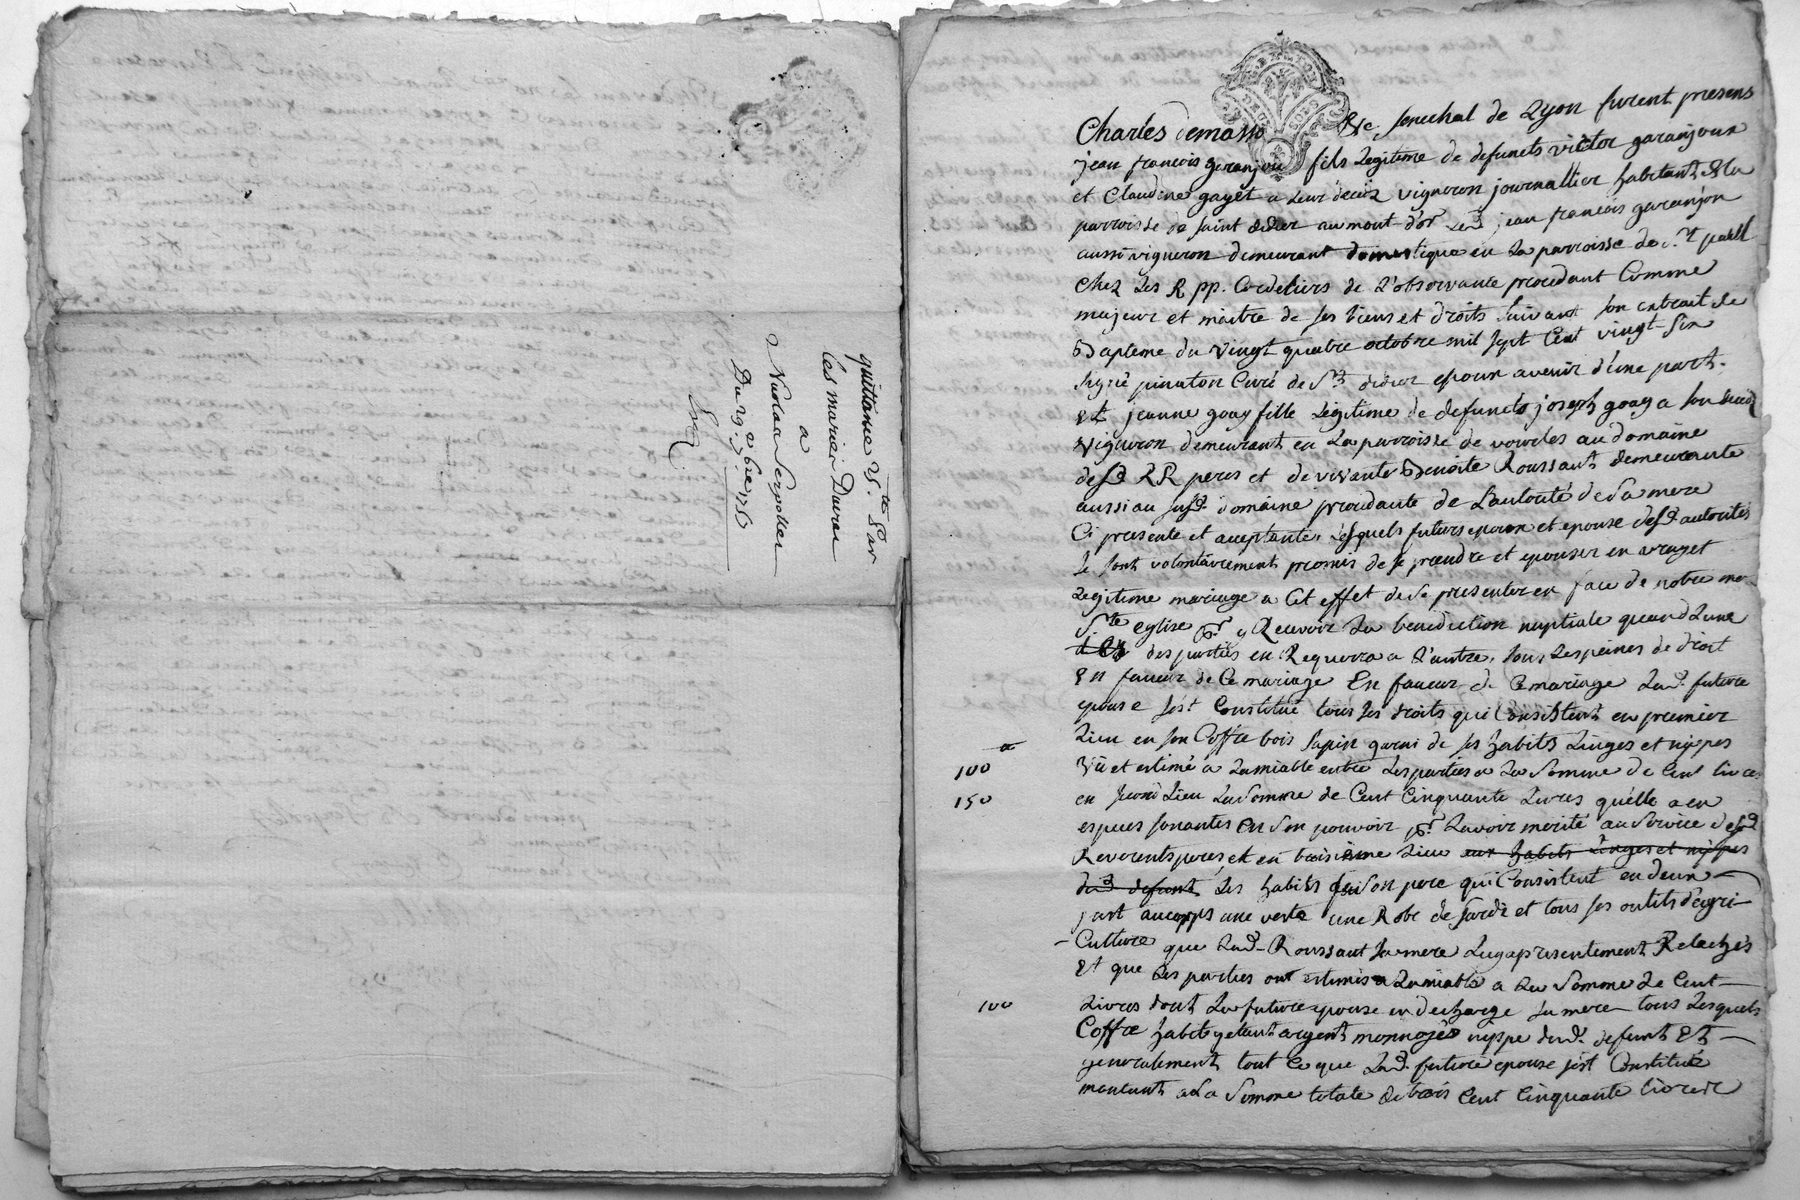 quittance 25.tt Par
les mariés Duvau
a
Nicolas Serpollet
Du 29. 9bre 1753
Charles demasso &c. senechal de Lyon furent presens
jean francois garanjou fils legitime de defunets victor garanjoun
et Claudine gayet a leur deces vigneron journallier habitant &la
parroisse de saint didier au mont d'or led. jean francois garanjon
aussi vigneron demeurant domestique en la parroisse de st paul
chez les R pp. Cordeliers de l'observance procedant Comme
majeur et maitre de ses biens et droits suivant son extrait de
Bapteme du vingt quatre octobre mil sept Cent vingt-six
signé pinaton Curé de St didier epoux avenir d'une part.
Et jeanne goay fille legitime de defuncts joseph goay a son deces
vigneron demeurant en la parroisse de vourles au domaine
desd RR peres et de vivante Benoite Roussant demeurante
aussi au susd. domaine procedante de l'autorité de sa mere
Ci presente et aceptante, lesquels futurs epoux et epouse desd. autorités
se sont volontairement promis de se prendre et epouser en vray et
legitime mariage a Cet effet de se presenter en face de notre me
Ste eglise pr y Recevoir la benediction nuptiale quand l'une
des parties en Requerra a l'autre, sous les peines de droit
En faveur de Ce mariage En faveur de Ce mariage lad. future
epouse s'est Constitué tous ses droits qui Consistent en premier
lieu en son Coffre bois sapin garni de ses habits linges et nippes
100 vû et estimé a lamiable entre les parties a la somme de Cent livres
150 en second lieu la somme de Cent Cinquante livres qu'elle a en
especes sonantes en son pouvoir pr. lavoir merité au service desd
Reverents peres et en troisieme lieu aux habits linges et nippes
dud. defunt les habits de son pere qui Consistent en deux
just aucorps une veste une Robe de sardi et tous ses outils d'agri-
Culture que lad. Roussant sa mere luy a presentement Relachés
Et que les parties ont estimés a lamiable a la somme de Cent
100 livres dont la future epouse en decharge sa mere tous lesquels
Coffre habits getant argent monnoyés nippe dud. defunt Et
generalement tout Ce que lad. future epouse s'est Constitué
montant a la somme totale de trois Cent Cinquante livres